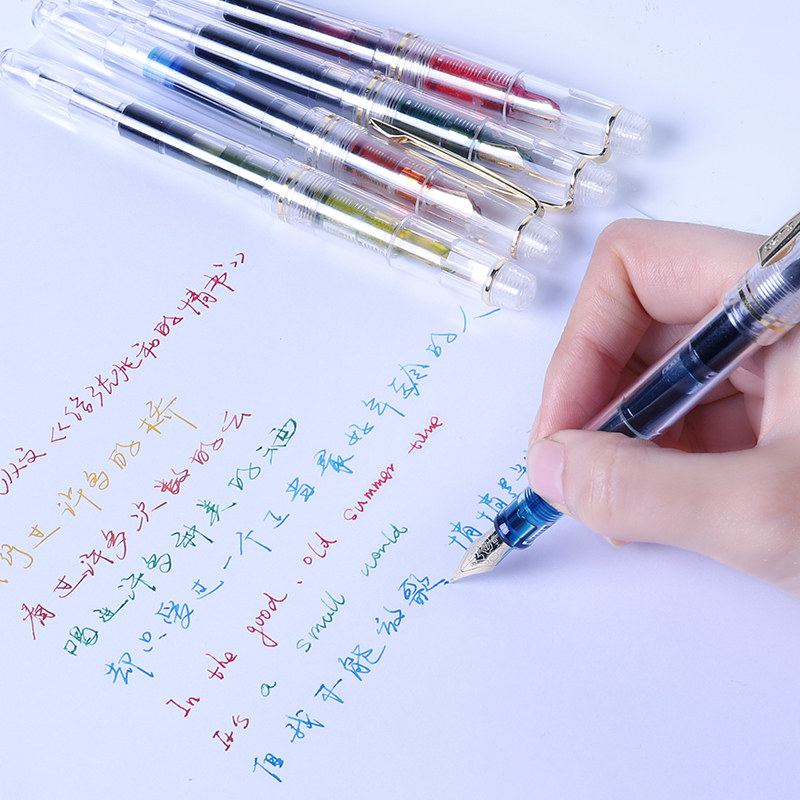 从文《给张兆和的情书》
行过许多的桥
看过许多次数的云
喝过许多种类的酒
却只爱过一个正当最好年龄的人
In the good. old summer time
It's a small world
但我不能放歌
悄悄是